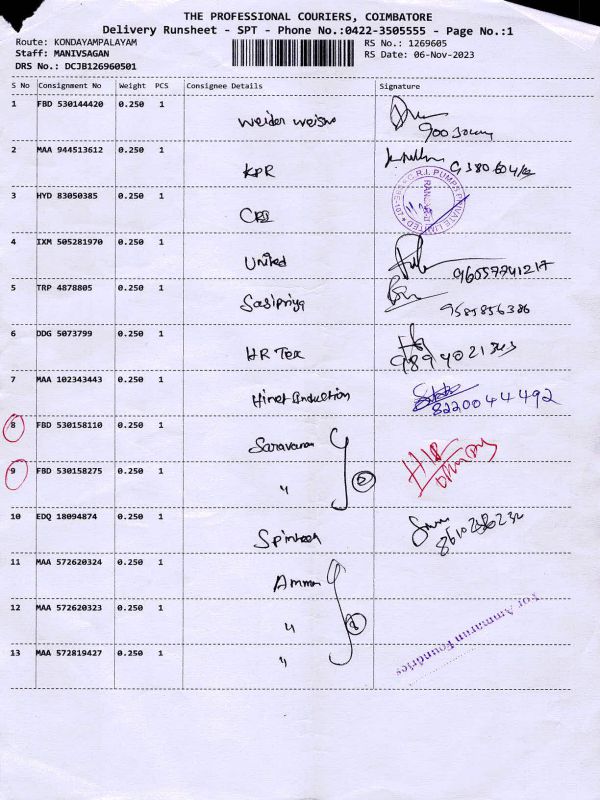 THE PROFESSIONAL COURIERS, COIMBATORE
Delivery Runsheet - SPT - Phone No.:0422-3505555 - Page No.:1
Route: KONDAYAMPALAYAM RS No.: 1269605
Staff: MANIVSAGAN RS Date: 06-Nov-2023
DRS No.: DCJB126960501
S No Consignment No Weight PCS Consignee Details Signature
1 FBD 530144420 0.250 1 Weider
2 MAA 944513612 0.250 1 KPR
3 HYD 83050385 0.250 1 CRI
C.R.I. PUMPS PRIVATE LIMITED
4 IXM 505281970 0.250 1 United
96057741217
5 TRP 4878805 0.250 1 Sasipriya
9585856386
6 DDG 5073799 0.250 1 HR Tex
9894021343
7 MAA 102343443 0.250 1 Hinet Induction
8220044492
8 FBD 530158110 0.250 1 Saravanan
9 FBD 530158275 0.250 1 "
2
10 EDQ 18094874 0.250 1
11 MAA 572620324 0.250 1 Amman
12 MAA 572620323 0.250 1 "
13 MAA 572819427 0.250 1 "
For Ammarun Foundries